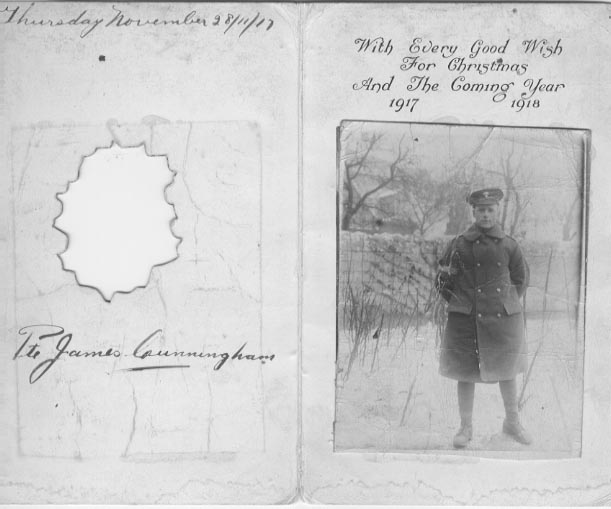 Thursday November 28/11/17
Pte James Cunningham
With Every Good Wish
For Christmas
And The Coming Year
1917 1918